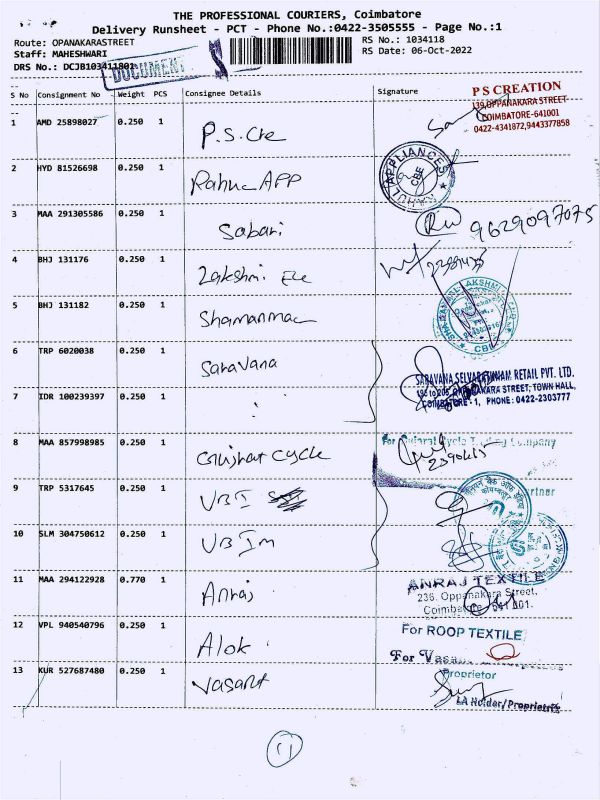 THE PROFESSIONAL COURIERS, Coimbatore
Delivery Runsheet - PCT - Phone No.:0422-3505555 - Page No.:1
Route: OPANAKARASTREET
Staff: MAHESHWARI
DRS No.: DCJB103411801
RS No.: 1034118
RS Date: 06-Oct-2022
DOCUMENT
S No Consignment No Weight PCS Consignee Details Signature
P S CREATION
139,OPPANAKARA STREET
COIMBATORE-641001
0422-4341872,9443377858
1 AMD 25898027 0.250 1 P.S.Cre
2 HYD 81526698 0.250 1 Rahul APP
RAHUL APPLIANCES
CBE
3 MAA 291305586 0.250 1 Sabari
9629097075
4 BHJ 131176 0.250 1 Lakshmi Ele
5 BHJ 131182 0.250 1
CBE
6 TRP 6020038 0.250 1 Saravana
SARAVANA SELVARATHNAM RETAIL PVT. LTD.
OPPANAKARA STREET, TOWN HALL,
COIMBATORE - 1, PHONE: 0422-2303777
7 IDR 100239397 0.250 1 :
8 MAA 857998985 0.250 1 Gujarat cycle
For Gujarat Cycle Trading Company
Partner
9 TRP 5317645 0.250 1 UBI
10 SLM 304750612 0.250 1 UBI m
11 MAA 294122928 0.770 1 Anraj
ANRAJ TEXTILE
236, Oppanakara Street,
Coimbatore - 641 001.
12 VPL 940540796 0.250 1 Alok
For ROOP TEXTILE
For
Proprietor
13 KUR 527687480 0.250 1 Vasant
Holder/Proprietrix
11